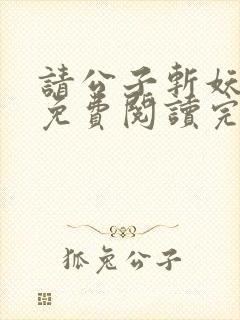 請公子斬妖
免費閱讀完
狐兔公子